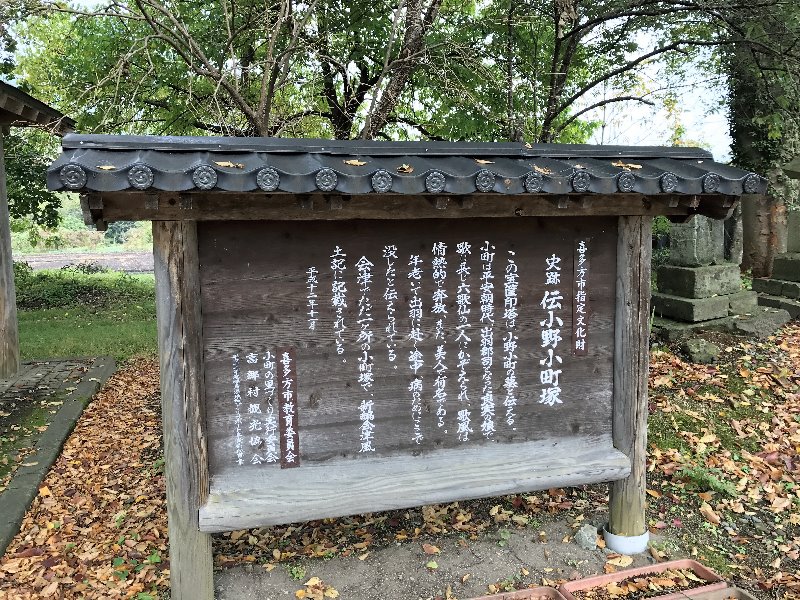 喜多方市指定文化財
史跡 伝小野小町塚
この宝篋印塔は、小野小町の墓と伝える。
小町は平安朝時代、出羽郡司
歌に長じ六歌仙の一人にかぞえられ、歌風は
情熱的で奔放、また、美人で有名である。
年老いて出羽に赴く途中病のためにここで
没したと伝えられている。
会津でただ一ヶ所の小町塚で、新編会津風
土記に記載されている。
平成十二年十一月
喜多方市教育委員会
小町の里づくり実行委員会
高郷村観光協会